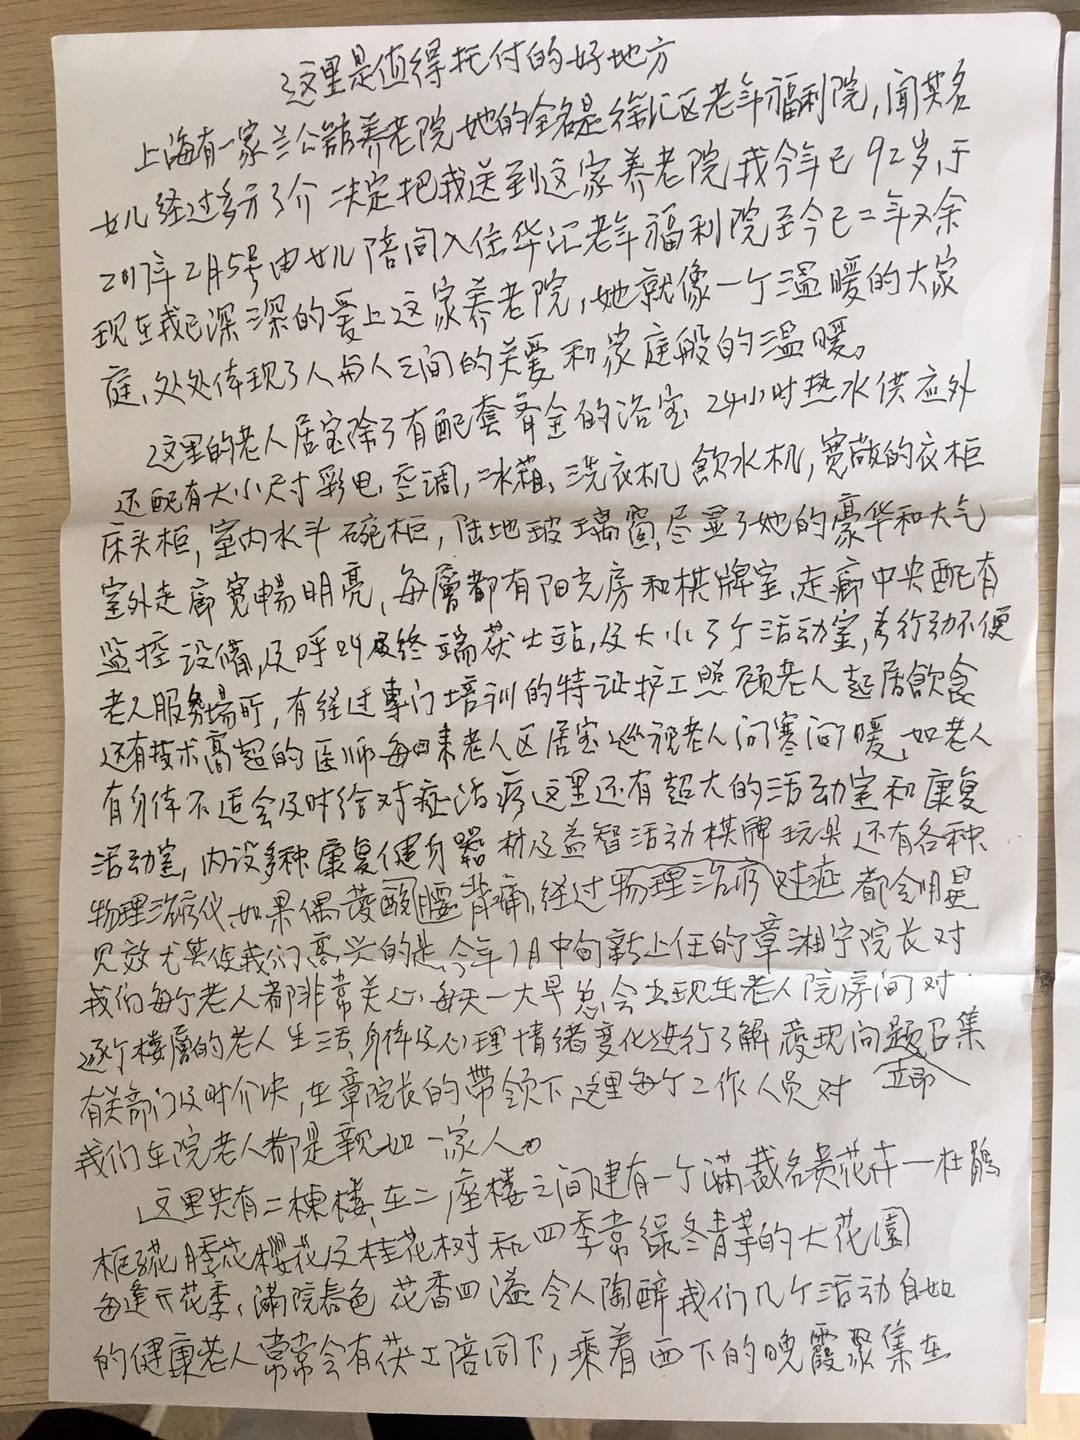 这里是值得托付的好地方
上海有一家兰公馆养老院,她的全名是徐汇区老年福利院,闻其名
女儿经过多方了介 决定把我送到这家养老院 我今年已92岁,于
2017年2月5号由女儿陪同入住华汇老年福利院至今已二年又余
现在我已深深的爱上这家养老院,她就像一个温暖的大家
庭、处处体现了人与人之间的关爱和家庭般的温暖。
这里的老人居室除了有配套齐全的浴室 24小时热水供应外
还配有大小尺寸彩电、空调,冰箱、洗衣机 飲水机,宽敞的衣柜
床头柜,室内水斗 碗柜,陆地玻璃窗,尽显了她的豪华和大气
室外走廊宽暢明亮,每層都有阳光房和棋牌室,走廊中央配有
监控设備,及呼叫终端茯士站,及大小3个活动室,为行动不便
老人服务場所,有经过專门培训的特证护工照顾老人起居飲食
还有技术高超的医师每日来老人区居室巡视老人问寒问暖,如老人
有身体不适会及时给对症治疗 这里还有超大的活动室和康复
活动室,内设多种康复健身器材及益智活动棋牌玩具 还有各种
物理治疗仪,如果偶发酸腰背痛,经过物理治疗对症都会明显
见效 尤其使我们高兴的是,今年1月中旬新上任的章湘宁院长对
我们每个老人都非常关心,每天一大早总会出现在老人院房间对
逐个楼層的老人生活,身体及心理情绪变化进行了解 發现问题召集
有关部门及时介决,在章院长的带领下,这里每个工作人员对 立即
我们在院老人都是親如一家人。
这里共有二棟楼,在二座楼之间建有一个满栽名贵花卉一杜鹃
月季花 樱花及桂花树和四季常绿冬青草的大花園
每逢开花季,满院春色 花香四溢 令人陶醉 我们几个活动自如
的健康老人常常会有茯工陪同下,乘着西下的晚霞聚集在